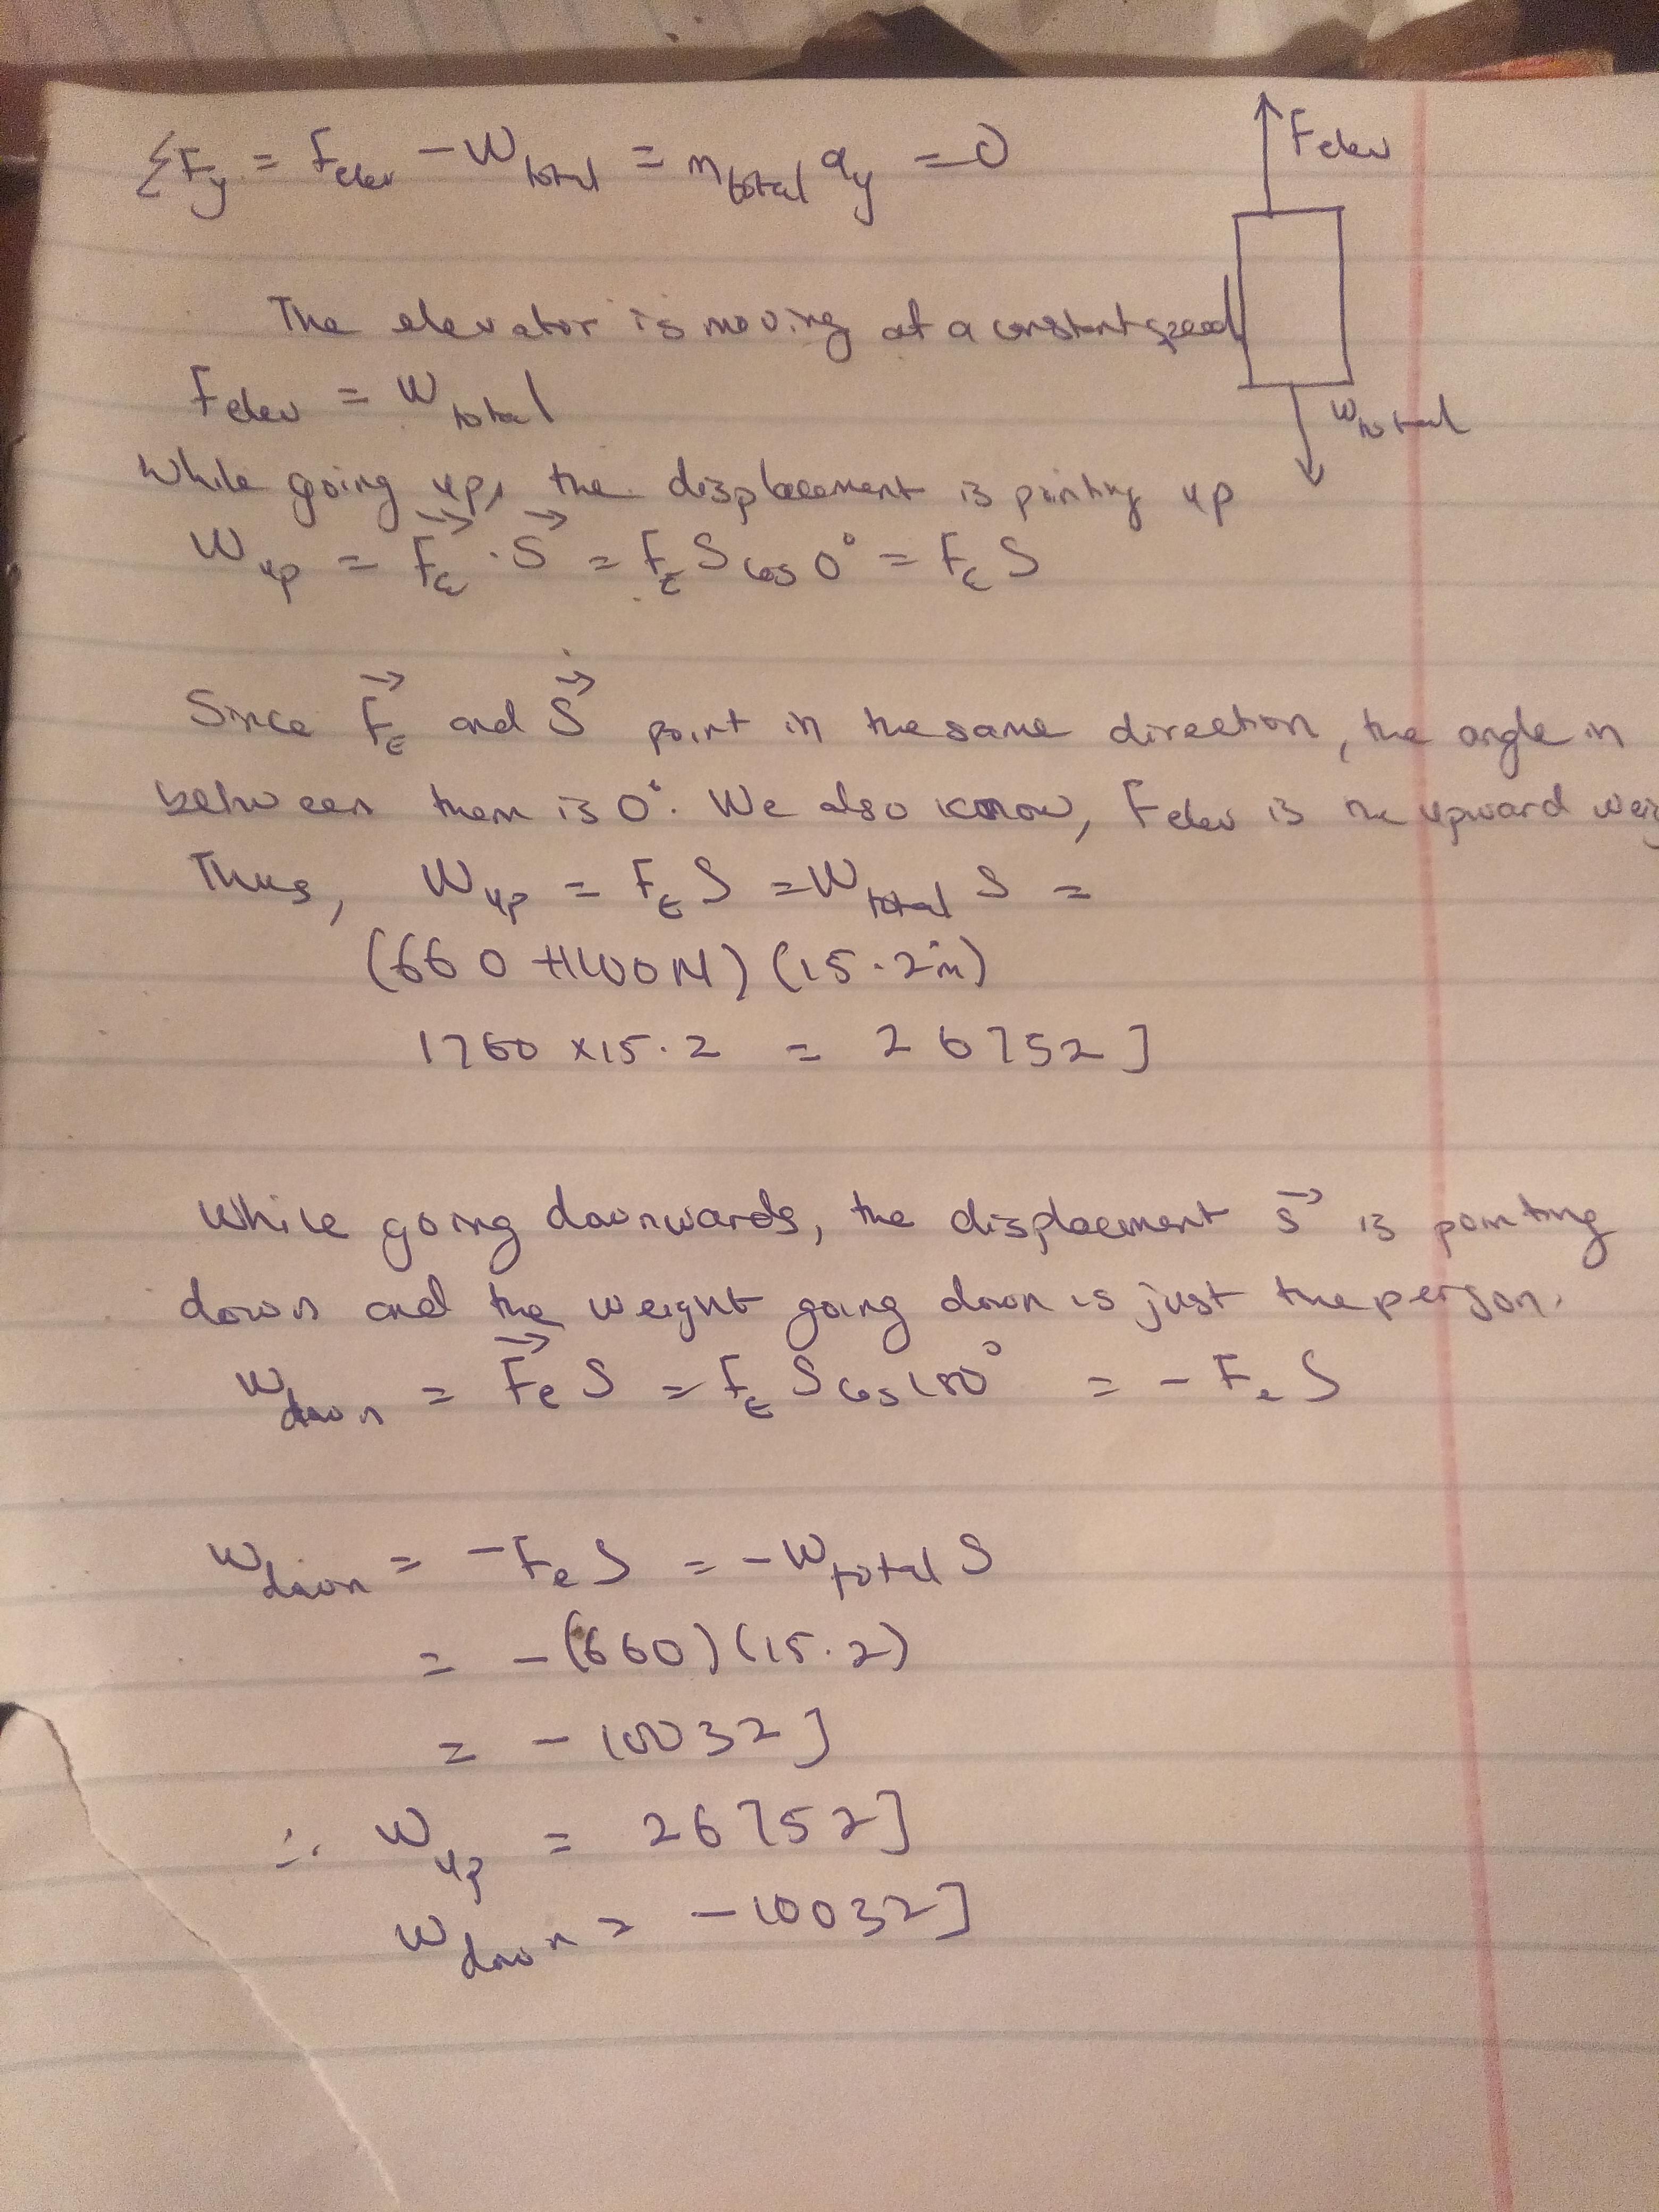 ΣFy = Felev - Wtotal = mtotal ay = 0
Felev
The elevator is moving at a constant speed
Felev = Wtotal
Wtotal
While going up, the displacement is pointing up
Wup = F⃗E · S⃗ = FE S cos 0° = FE S
Since F⃗E and S⃗ point in the same direction, the angle in
between them is 0°. We also know, Felev is the upward
Thus, Wup = FE S = Wtotal S =
(660 + 1100N) (15.2m)
1760 × 15.2 = 26752 J
While going downwards, the displacement s⃗ is pointing
down and the weight going down is just the person.
Wdown = F⃗e S = FE S cos 180° = - Fe S
Wdown = - Fe S = - Wtotal S
= - (660) (15.2)
= - 10032 J
∴ Wup = 26752 J
Wdown = - 10032 J